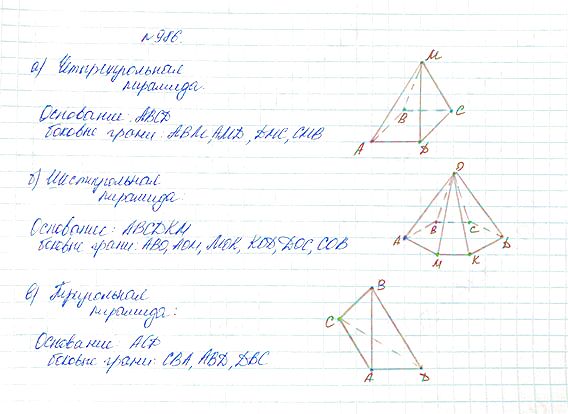 №986.
а) Четырёхугольная
пирамида.
Основание: ABCD
боковые грани: ABM, AMD, DMC, CMB
б) Шестиугольная
пирамида.
Основание: ABCDKM
боковые грани: ABO, AOM, MOK, KOD, DOC, COB
в) Треугольная
пирамида:
Основание: ACD
боковые грани: CBA, ABD, DBC
M
B
C
A
D
O
B
C
A
D
M
K
B
C
A
D